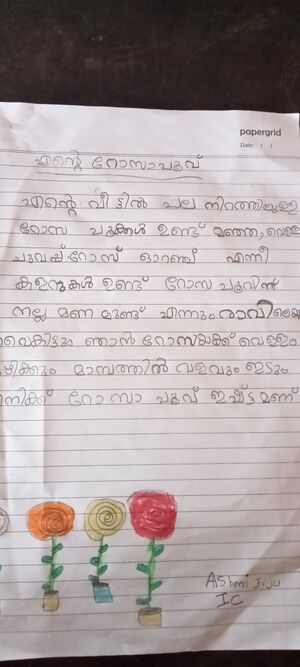 papergrid
Date: / /
എന്റെ റോസാപൂവ്
എന്റെ വീട്ടിൽ പല നിറത്തിലുള്ള
റോസ പൂക്കൾ ഉണ്ട് മഞ്ഞ, വെള്ള
ചുവപ്പ് റോസ് ഓറഞ്ച് എന്നീ
കളറുകൾ ഉണ്ട് റോസ പൂവിന്
നല്ല മണ മുണ്ട് എന്നും രാവിലെയ
വൈകിട്ടും ഞാൻ റോസയ്ക്ക് വെള്ളം
ഴിക്കും മാസത്തിൽ വളവും ഇടും
നിക്ക് റോസാ പൂവ് ഇഷ്ട്ടമണ്
Ashmi Jiju
IC